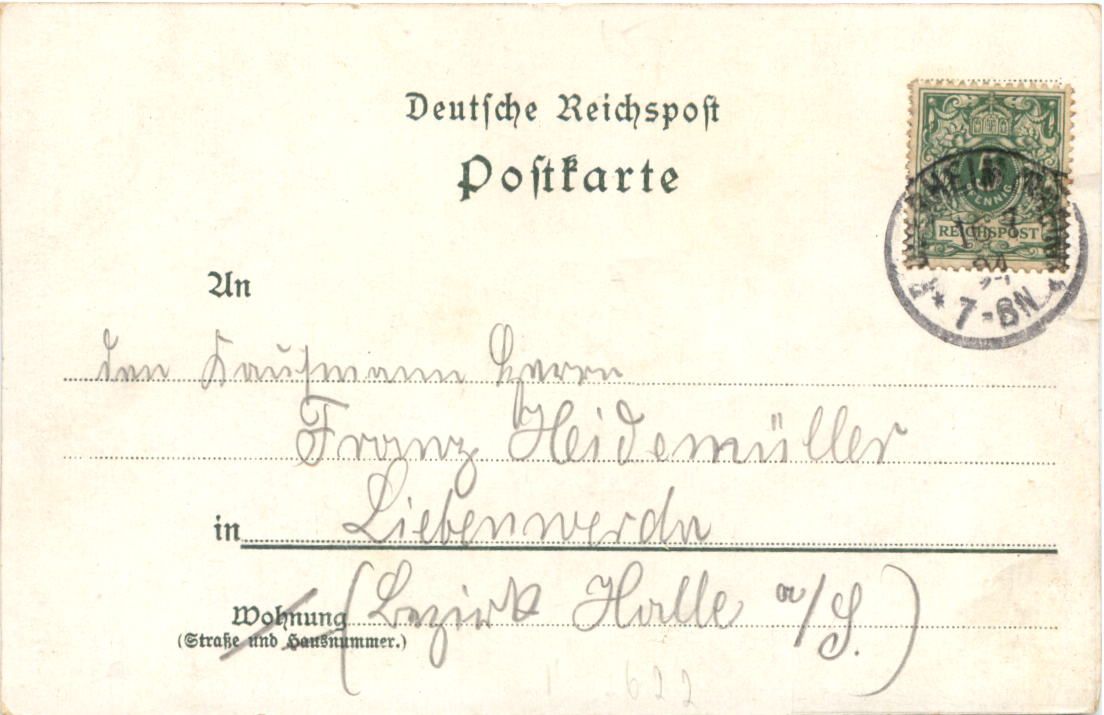 Deutsche Reichspost
Postkarte
PFENNIG
REICHSPOST
94
* 7-8N
An
den Kaufmann Herrn
Franz Heidemüller
in Liebenwerda
Wohnung (Bezirk Halle a/S.)
(Straße und Hausnummer.)
622